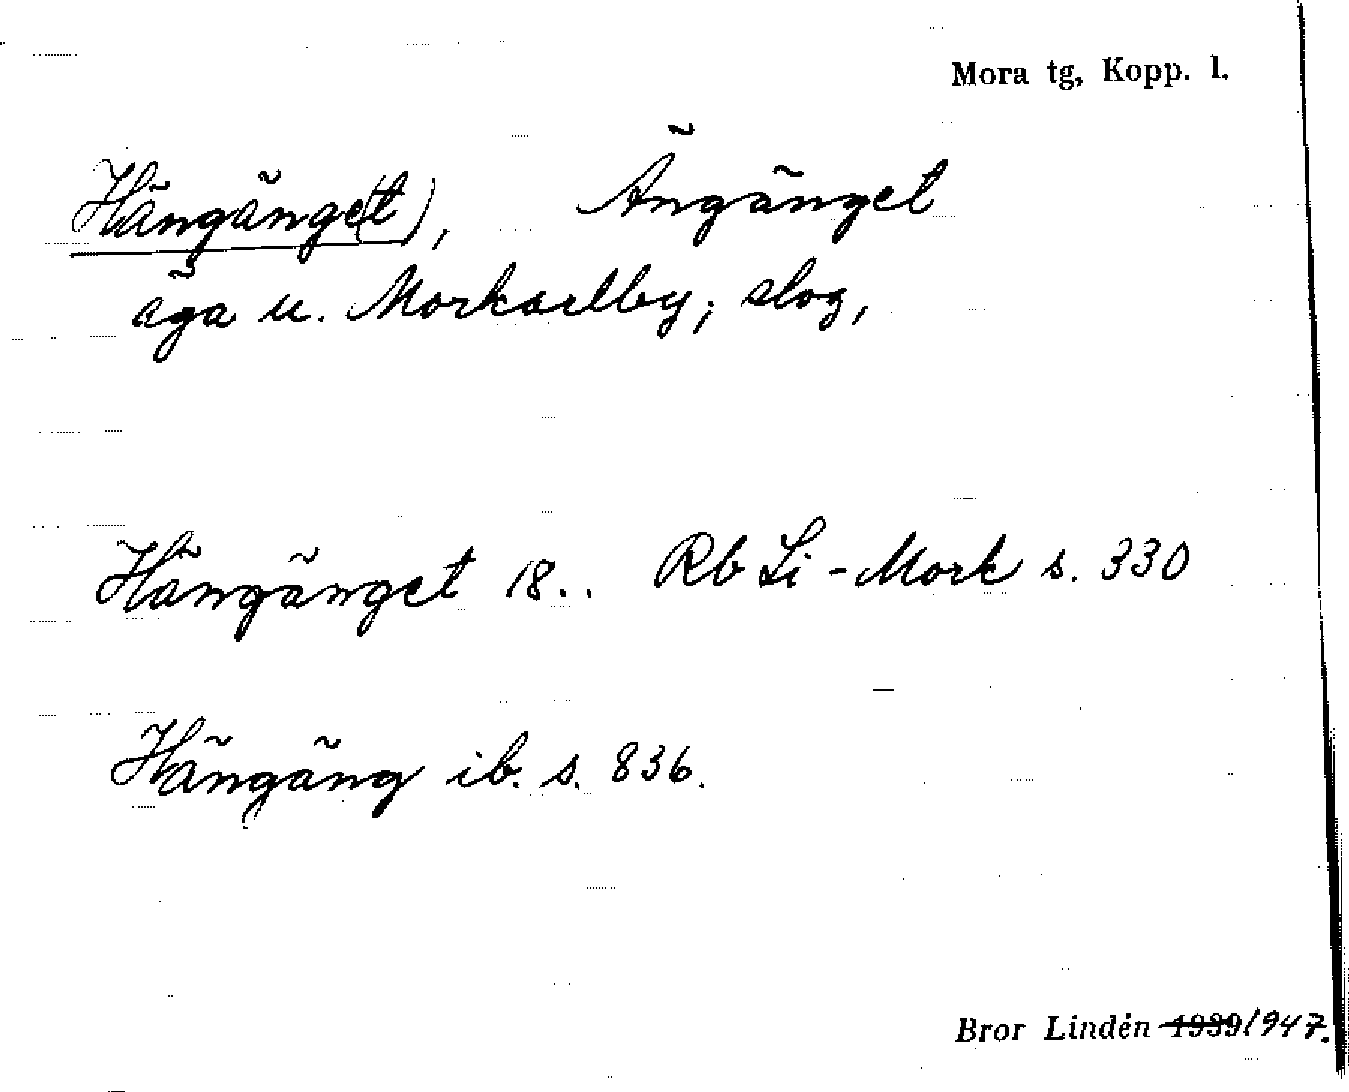 Mora tg, Kopp. l.
Hängänge(t), Ängänget
äga u. Morkarlby, slog,
Hängänget 18.. Rb Li-Mork s. 330
Hängäng ib. s. 836.
Bror Lindén 1939 1947.